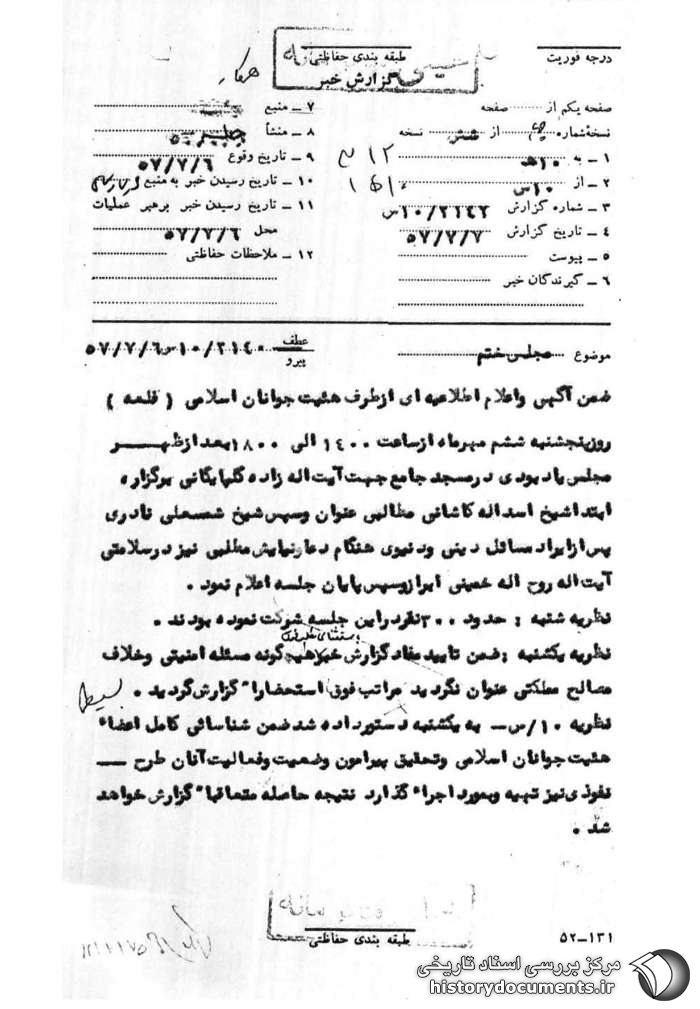 درجه فوریت
طبقه بندی حفاظتی
گزارش خبر
همکار
صفحه یکم از صفحه
نسخه شماره از شش نسخه
۱ ــ به ۱۰هـ
۲ ــ از ۱۰س
۳ ــ شماره گزارش ۱۰/۲۱۴۲س
۴ ــ تاریخ گزارش ۵۷/۷/۷
۵ ــ پیوست
۶ ــ گیرندگان خبر
۳۱۲
۷ ــ منبع
۸ ــ منشأ
۹ ــ تاریخ وقوع ۵۷/۷/۶
۱۰ ــ تاریخ رسیدن خبر به منبع
۱۱ ــ تاریخ رسیدن خبر برهبر عملیات
محل ۵۷/۷/۶
۱۲ ــ ملاحظات حفاظتی
موضوع مجلس ختم
عطف
پیرو
۱۰/۲۱۴۰س ۵۷/۷/۶
ضمن آگهی واعلام اطلاعیه ای ازطرف هئیت جوانان اسلامی ( قلعه )
روزپنجشنبه ششم مهرماه ازساعت ۱۴۰۰ الی ۱۸۰۰ بعدازظهر
مجلس یادبودی درمسجد جامع جهت آیت اله زاده گلپایگانی برگزار
ابتداشیخ اسداله کاشانی مطالبی عنوان وسپس شیخ شمسعلی نادری
پس ازایراد مسائل دینی ودنیوی هنگام دعاونیایش مطلبی نیزدرسلامتی
آیت اله روح اله خمینی ابرازوسپس پایان جلسه اعلام نمود .
نظریه شنبه : حدود ۳۰۰نفردراین جلسه شرکت نموده بودند .
نظریه یکشنبه : ضمن تایید مفاد گزارش خبر هیچگونه مسئله امنیتی وخلاف
مصالح مملکتی عنوان نگردید مراتب فوق استحضارا" گزارش گردید .
نظریه ۱۰/س ــ به یکشنبه دستورداده شد ضمن شناسائی کامل اعضاء
هئیت جوانان اسلامی وتحقیق پیرامون وضعیت وفعالیت آنان طرح ــ
نفوذی نیز تهیه وبمورد اجراء گذارد نتیجه حاصله متعاقبا" گزارش خواهد
شد .
طبقه بندی حفاظتی
۵۲ــ۱۳۱
مرکز بررسی اسناد تاریخی
historydocuments.ir